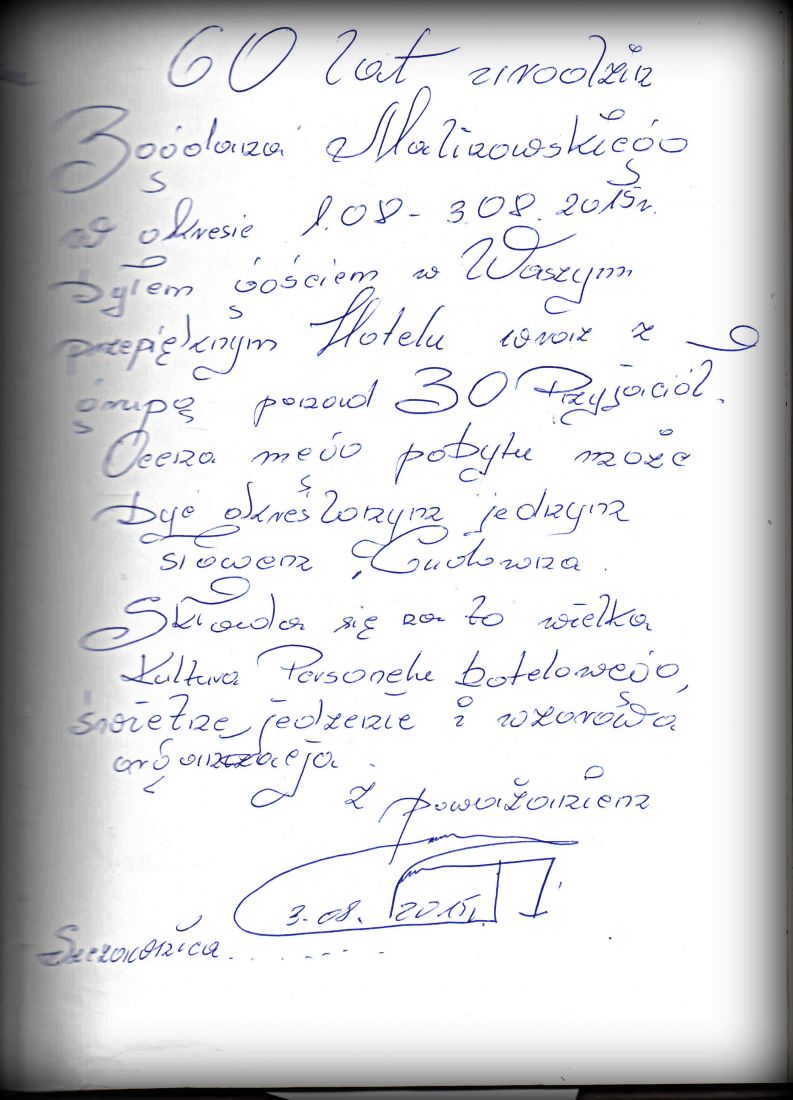 60 lat urodzin
Bogdana Malinowskiego
w okresie 1.08 - 3.08.2015r.
byłem gościem w Waszym
przepięknym Hotelu wraz z
grupą ponad 30 Przyjaciół.
Ocena mego pobytu może
być określonym jednym
słowem „Cudowna.
Składa się na to wielka
Kultura Personelu hotelowego,
świetne jedzenie i wzorowa
organizacja.
Z poważaniem
3.08. 2015r.
Szczawnica . . . . . . .